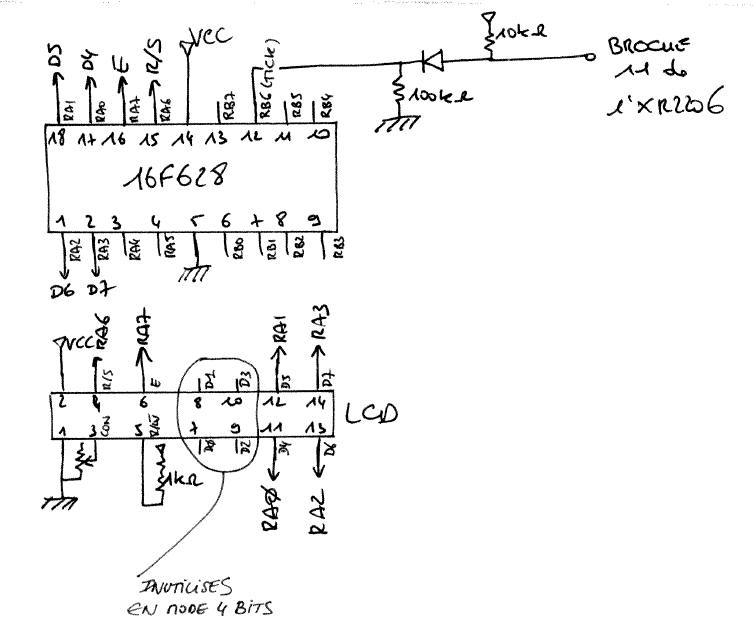 D5
D4
E
R/S
VCC
RA1
RA0
RA7
RA6
RB7
RB6 (TICK)
RB5
RB4
10kΩ
100kΩ
BROCHE
11 de
l'XR2206
18 17 16 15 14 13 12 11 10
16F628
1 2 3 4 5 6 7 8 9
RA2
RA3
RA4
RA5
RB0
RB1
RB2
RB3
D6 D7
VCC
RA6
RA7
RA1
RA3
R/S
E
D1
D3
D5
D7
2 4 6 8 10 12 14
LCD
1 3 5 7 9 11 13
CON
R/W
D0
D2
D4
D6
1kΩ
RA0
RA2
INUTILISES
EN MODE 4 BITS